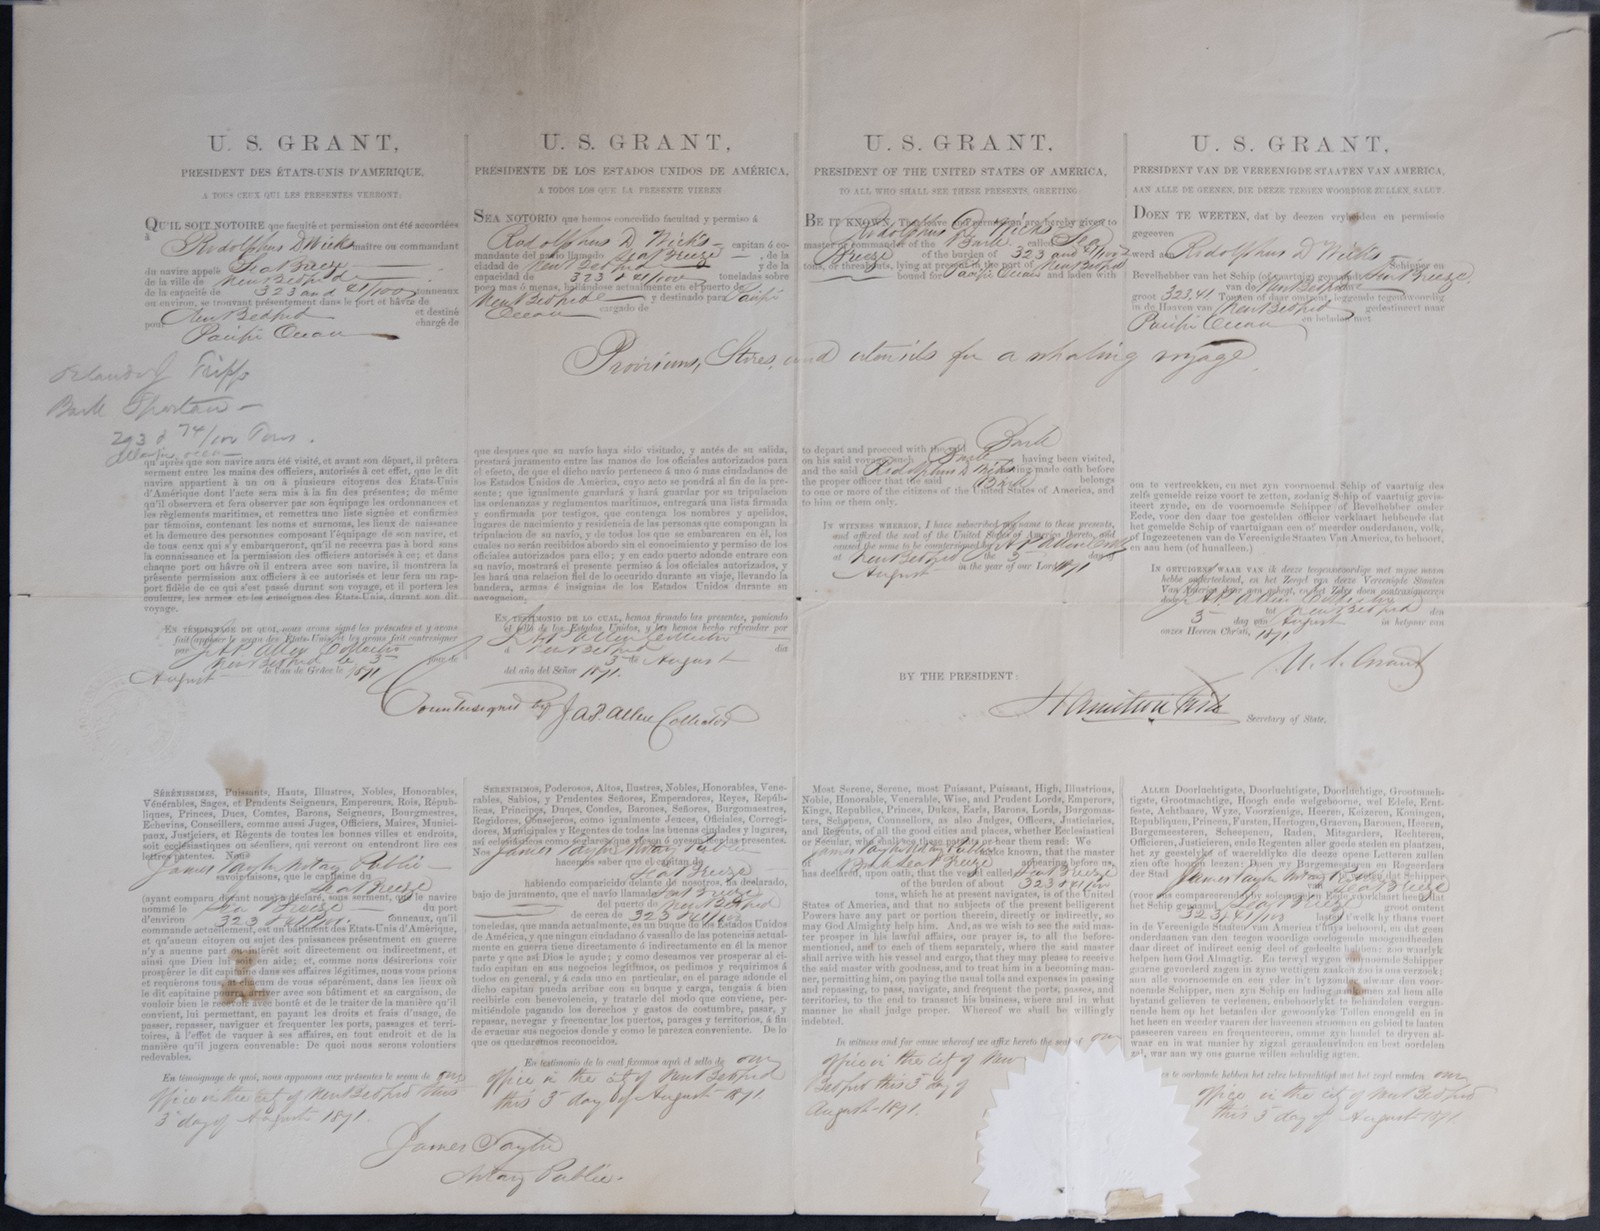 U. S. GRANT,
PRESIDENT DES ÉTATS-UNIS D'AMERIQUE,
A TOUS CEUX QUI LES PRESENTES VERRONT:
QU'IL SOIT NOTOIRE que faculté et permission ont été accordées
à Rodolphus D Wicks maître ou commandant
du navire appelé Sea Breeze
de la ville de New Bedford
de la capacité de 323 and 41/100 tonneaux
ou environ, se trouvant présentement dans le port et hâvre de
New Bedford et destiné
pour Pacific Ocean chargé de
U. S. GRANT,
PRESIDENTE DE LOS ESTADOS UNIDOS DE AMÉRICA,
A TODOS LOS QUE LA PRESENTE VIEREN:
SEA NOTORIO que hemos concedido facultad y permiso á
Rodolphus D Wicks capitan ó co-
mandante del navio llamado Sea Breeze, de la
ciudad de New Bedford y de la
capacidad de 323 & 41/100 toneladas sobre
poco mas ó ménos, hallándose actualmente en el puerto de
New Bedford y destinado para Pacific
Ocean cargado de
U. S. GRANT,
PRESIDENT OF THE UNITED STATES OF AMERICA,
TO ALL WHO SHALL SEE THESE PRESENTS, GREETING:
BE IT KNOWN, That leave and permission are hereby given to
Rodolphus D. Wicks
master or commander of the Bark called Sea
Breeze of the burden of 323 and 41/100
tons, or thereabouts, lying at present in the port of New Bedford
bound for Pacific Ocean and laden with
U. S. GRANT,
PRESIDENT VAN DE VEREENIGDE STAATEN VAN AMERICA,
AAN ALLE DE GEENEN, DIE DEEZE TERGEN WOORDIGE ZULLEN, SALUT.
DOEN TE WEETEN, dat by deezen vryheiden en permissie
gegeeven
werd aan Rodolphus D Wicks Schipper en
Bevelhebber van het Schip (of vaartuig) genaamd Sea Breeze
van de New Bedford
groot 323.41 Tonnen of daar omtrent, leggende tegenswoordig
in de Haeven van New Bedford gedestineert naar
Pacific Ocean en beladen met
Provisions, Stores, and utensils for a whaling voyage
Tripp
Bark Spartan
293 & 74/100 Tons.
qu'après que son navire aura été visité, et avant son départ, il prêtera
serment entre les mains des officiers, autorisés à cet effet, que le dit
navire appartient à un ou à plusieurs citoyens des États-Unis
d'Amérique dont l'acte sera mis à la fin des présentes; de même
qu'il observera et fera observer par son équipage les ordonnances et
les règlements maritimes, et remettra une liste signée et confirmée
par témoins, contenant les noms et surnoms, les lieux de naissance
et la demeure des personnes composant l'équipage de son navire, et
de tous ceux qui s'y embarqueront, qu'il ne recevra pas à bord sans
la connaissance et la permission des officiers autorisés à ce; et dans
chaque port ou hâvre où il entrera avec son navire, il montrera la
présente permission aux officiers à ce autorisés et leur fera un rap-
port fidèle de ce qui s'est passé durant son voyage, et il portera les
couleurs, les armes et les enseignes des États-Unis, durant son dit
voyage.
EN TÉMOIGNAGE DE QUOI, nous avons signé les présentes et y avons
fait apposer le sceau des États-Unis et les avons fait contresigner
par J. A. P. Allen Collector
New Bedford le 3 jour de
August de l'an de Grâce le 1871
que despues que su navio haya sido visitado, y ántes de su salida,
prestará juramento entre las manos de los oficiales autorizados para
el efecto, de que el dicho navio pertenece á uno ó mas ciudadanos de
los Estados Unidos de América, cuyo acto se pondrá al fin de la pre-
sente; que igualmente guardará y hará guardar por su tripulacion
las ordenanzas y reglamentos maritimos, entregará una lista firmada
y confirmada por testigos, que contenga los nombres y apelidos,
lugares de nacimiento y residencia de las personas que compongan la
tripulacion de su navio, y de todos los que se embarcaren en él, los
cuales no serán recibidos abordo sin el conocimiento y permiso de los
oficiales autorizados para ello; y en cada puerto adonde entrare con
su navio, mostrará el presente permiso á los oficiales autorizados, y
les hará una relacion fiel de lo ocurrido durante su viaje, llevando la
bandera, armas é insignias de los Estados Unidos durante su
navegacion.
EN TESTIMONIO DE LO CUAL, hemos firmado las presentes, poniendo
el sello de los Estados Unidos, y las hemos hecho refrendar por
J. A. P. Allen Collector
á New Bedford dia
3 de August
del año del Señor 1871.
to depart and proceed with the said Bark
on his said voyage, such Bark having been visited,
and the said Rodolphus D Wicks having made oath before
the proper officer that the said Bark belongs
to one or more of the citizens of the United States of America, and
to him or them only.
IN WITNESS WHEREOF, I have subscribed my name to these presents,
and affixed the seal of the United States of America thereto, and
caused the same to be countersigned by J. A. P. Allen Coll
New Bedford the 3 day of
August in the year of our Lord 1871
om te vertreekken, en met zyn voornoemd Schip of vaartuig des
zelfs gemelde reize voort te zetten, zodanig Schip of vaartuig gevis-
iteert zynde, en de voornoemde Schipper of Bevelhebber onder
Eede, voor den daar toe gestelden officier verklaart hebbende dat
het gemelde Schip of vaartuigaan een of meerder onderdanen, volk,
of Ingezeetenen van de Vereenigde Staaten Van America, te behoort,
en aan hem (of hunalleen.)
IN GETUIGENS WAAR VAN ik deeze teegenswoordige met myne naam
hebbe onderteekend, en het Zeegel van deeze Vereenigde Staaten
Van America daar aan gehegt, en het Zelve doen contrasigneeren
door J. A. P. Allen Collector
tot New Bedford den
3 day van August in hetjaar van
onzes Heeren Christi, 1871
U. S. Grant
BY THE PRESIDENT:
Hamilton Fish
Secretary of State.
Countersigned by J. A. P. Allen Collector
SÉRÉNISSIMES, Puissants, Hauts, Illustres, Nobles, Honorables,
Vénérables, Sages, et Prudents Seigneurs, Empereurs, Rois, Répub-
liques, Princes, Ducs, Comtes, Barons, Seigneurs, Bourgmestres,
Echevins, Conseillers, comme aussi Juges, Officiers, Maires, Munici-
paux, Justiciers, et Régents de toutes les bonnes villes et endroits,
soit ecclésiastiques ou séculiers, qui verront ou entendront lire ces
lettres patentes. Nous
James Taylor Notary Public
savoir faisons, que le capitaine du
Sea Breeze
(ayant comparu devant nous) a déclaré, sous serment, que le navire
nommé le Sea Breeze du port
d'environ 323 & 41/100 tonneaux, qu'il
commande actuellement, est un bâtiment des États-Unis d'Amérique,
et qu'aucun citoyen ou sujet des puissances présentement en guerre
n'y a aucune part ou intérêt soit directement ou indirectement, et
ainsi que Dieu lui soit en aide; et, comme nous désirerions voir
prospérer le dit capitaine dans ses affaires légitimes, nous vous prions
et requérons tous et chacun de vous séparément, dans les lieux où
le dit capitaine pourra arriver avec son bâtiment et sa cargaison, de
vouloir bien le recevoir avec bonté et de le traiter de la manière qu'il
convient, lui permettant, en payant les droits et frais d'usage, de
passer, repasser, naviguer et frequenter les ports, passages et terri-
toires, à l'effet de vaquer à ses affaires, en tout endroit et de la
manière qu'il jugera convenable: De quoi nous serons volontiers
redevables.
En témoignage de quoi, nous apposons aux présentes le sceau de our
office in the city of New Bedford this
3 day of August 1871.
SERENISIMOS, Poderosos, Altos, Ilustres, Nobles, Honorables, Vene-
rables, Sabios, y Prudentes Señores, Emperadores, Reyes, Repúb-
licas, Principes, Duqes, Condes, Barones, Señores, Burgumaestros,
Regidores, Consejeros, como igualmente Jueces, Oficiales, Corregi-
dores, Municipales y Regentes de todas las buenas ciudades y lugares,
asi eclesiásticos como seglares que vieren ó oyesen leer las presentes.
Nos James Taylor Notary Public
hacemos saber que el capitan de
Sea Breeze
habiendo comparicido delante de nosotros, ha declarado,
bajo de juramento, que el navio llamado Sea Breeze
del puerto de New Bedford
de cerca de 323 & 41/100
toneledas, que manda actualmente, es un buque de los Estados Unidos
de América, y que ningun ciudadano ó vasallo de las potencias actual-
mente en guerra tiene directamente ó indirectamente en él la menor
parte y que asi Dios le ayude; y como deseamos ver prosperar al ci-
tado capitan en sus negocios legítimos, os pedimos y requirimos á
todos en general, y á cada uno en particular, en el parage donde el
dicho capitan pueda arribar con su buque y carga, tengais á bien
recibirle con benevolencia, y tratarle del modo que conviene, per-
mitiéndole pagando los derechos y gastos de costumbre, pasar, y
repasar, nevegar y freesentar los puertos, parages y territorios, á fin
de evacuar sus negocios donde y como le parezca conveniente. De lo
que os quedaramos reconocidos.
En testimonio de lo cual firamos aqui el sello de our
office in the city of New Bedford
this 3 day of August 1871.
Most Serene, Serene, most Puissant, Puissant, High, Illustrious,
Noble, Honorable, Venerable, Wise, and Prudent Lords, Emperors,
Kings, Republics, Princes, Dukes, Earls, Barons, Lords, Burgomas-
ters, Schepens, Counsellors, as also Judges, Officers, Justiciaries,
and Regents, of all the good cities and places, whether Ecclesiastical
or Secular, who shall see these patents or hear them read: We
James Taylor Notary Public make known, that the master
of Bark Sea Breeze appearing before us,
has declared, upon oath, that the vessel called Sea Breeze
of the burden of about 323 & 41/100
tons, which he at present navigates, is of the United
States of America, and that no subjects of the present belligerent
Powers have any part or portion therein, directly or indirectly, so
may God Almighty help him. And, as we wish to see the said mas-
ter prosper in his lawful affairs, our prayer is, to all the before-
mentioned, and to each of them separately, where the said master
shall arrive with his vessel and cargo, that they may please to receive
the said master with goodness, and to treat him in a becoming man-
ner, permitting him, on paying the usual tolls and expenses in passing
and repassing, to pass, navigate, and frequent the ports, passes, and
territories, to the end to transact his business, where and in what
manner he shall judge proper. Whereof we shall be willingly
indebted.
In witness and for cause whereof we affix hereto the seal of our
office in the city of New
Bedford this 3 day of
August 1871.
ALLER Doorluchtigste, Doorluchtigste, Doorluchtige, Grootmach-
tigste, Grootmachtige, Hoogh ende welgeboorne, wel Edele, Ernt-
feste, Achtbaare, Wyze, Voorzienige, Heeren, Keizeren, Koningen,
Republiquen, Princen, Fursten, Hertogen, Graeven, Baronen, Heeren,
Burgemeesteren, Scheepenen, Raden, Mitsgarders, Rechteren,
Officieren, Justicieren, ende Regenten aller goede steden en plaatzen,
het zy geestelyke of waereldlyke die deeze opene Letteren zullen
zien ofte hooren leezen: Doen wy Burgemeesteren en Regeerders
der Stad James Taylor Notary Public dat Schipper
van Sea Breeze
(voor ons compareerende) by solemneelen Eede verklaart heeft dat
het Schip genaamd Sea Breeze groot omtrent
323 & 41/100 lasten t'welk hy thans voert
in de Vereenigde Staaten van America t'huys behoord, en dat geen
onderdaanen van den tegen woordige oorlogende moogendheeden
daar direct of indirect eenig deel of gedeelte in hebben; zoo waarlyk
helpen hem God Almagtig.
James Taylor
Notary Public.
office in the city of New Bedford
this 3 day of August 1871